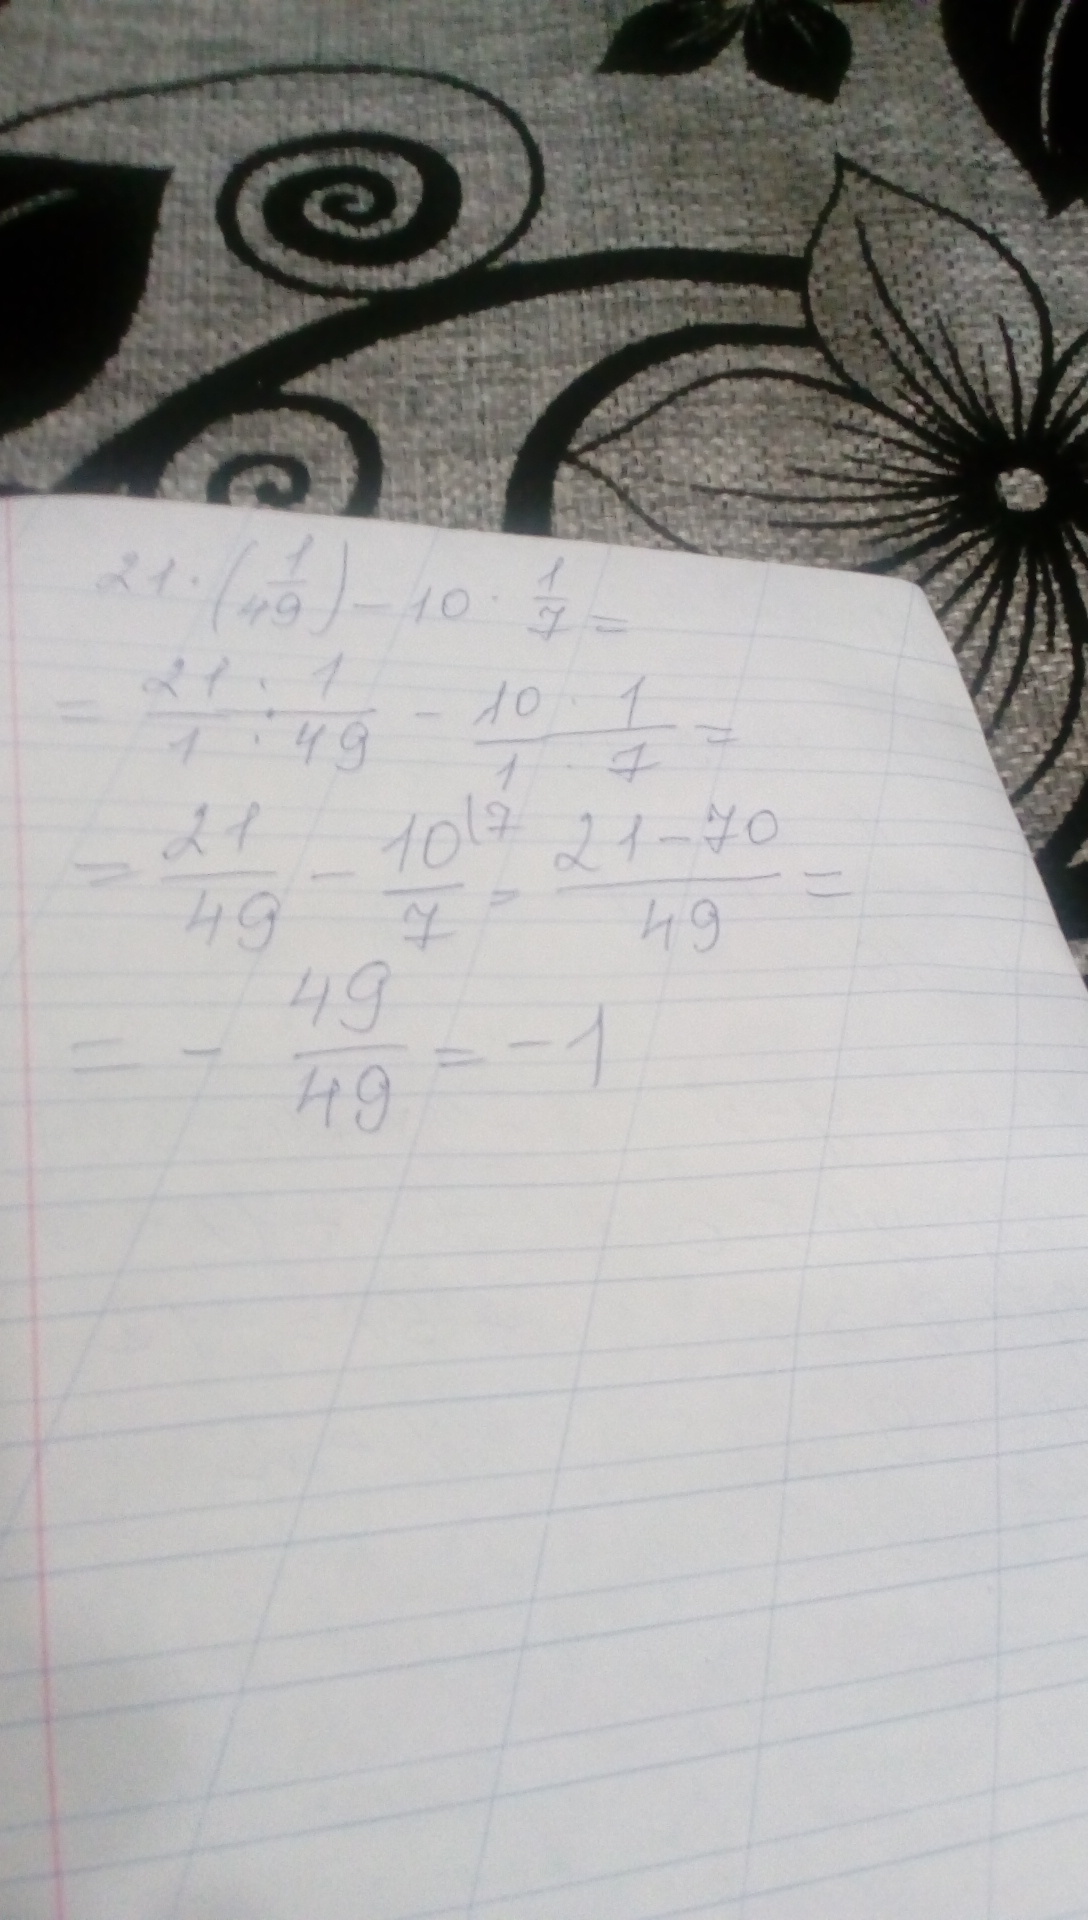 21 · (1/49) - 10 · 1/7 =
= 21 · 1 / 1 · 49 - 10 · 1 / 1 · 7 =
= 21/49 - 10/7 |7 = 21-70/49 =
= - 49/49 = -1